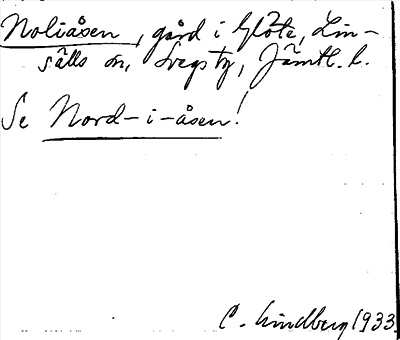 Noliåsen, gård i Glöte, Lin-
sälls sn, Svegs tg, Jämtl. l.
Se Nord-i-åsen!
C. Lindberg 1933.